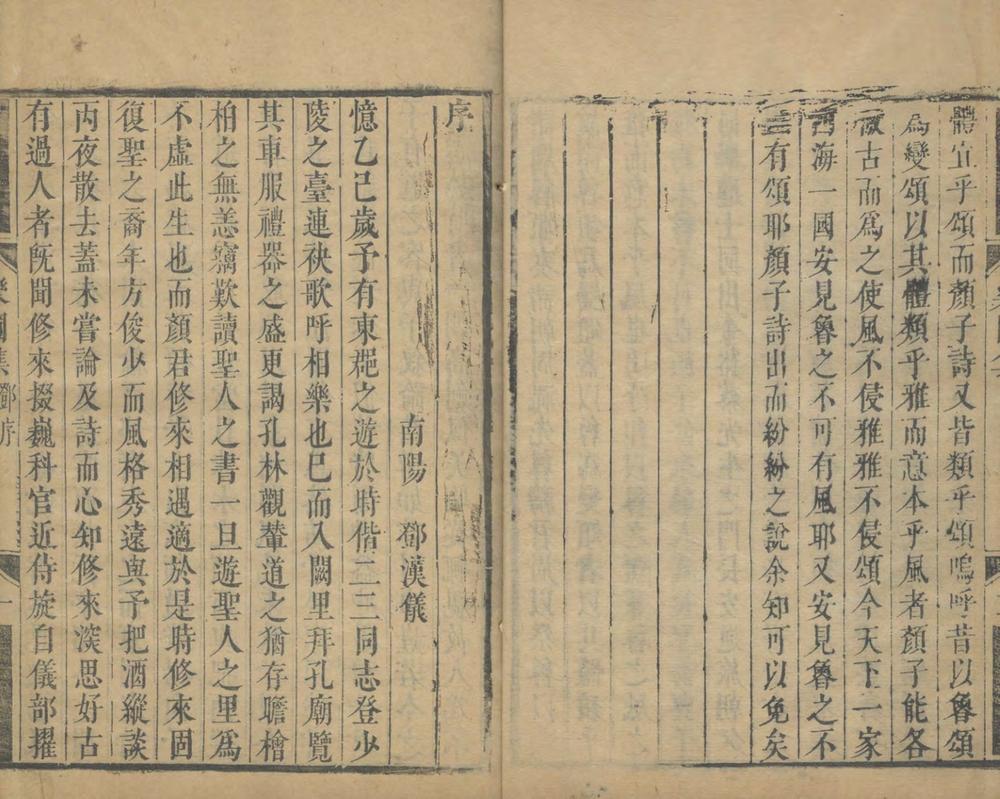 體宜乎頌而顏子詩又皆類乎頌嗚呼昔以魯頌
為變頌以其體類乎雅而意本乎風者顏子能各
倣古而爲之使風不侵雅雅不侵頌今天下一家
四海一國安見魯之不可有風耶又安見魯之不
有頌耶顏子詩出而紛紛之說余知可以免矣
序
南陽 鄧漢儀
憶乙己歲予有東兗之遊於時偕二三同志登少
陵之臺連袂歌呼相樂也巳而入闕里拜孔廟覽
其車服禮器之盛更謁孔林觀輦道之猶存瞻檜
柏之無恙竊歎讀聖人之書一旦遊聖人之里爲
不虛此生也而顏君修來相遇適於是時修來固
復聖之裔年方俊少而風格秀遠與予把酒縱談
丙夜散去蓋未嘗論及詩而心知修來深思好古
有過人者旣聞修來掇巍科官近侍旋自儀部擢
樂圃集 鄧序
一